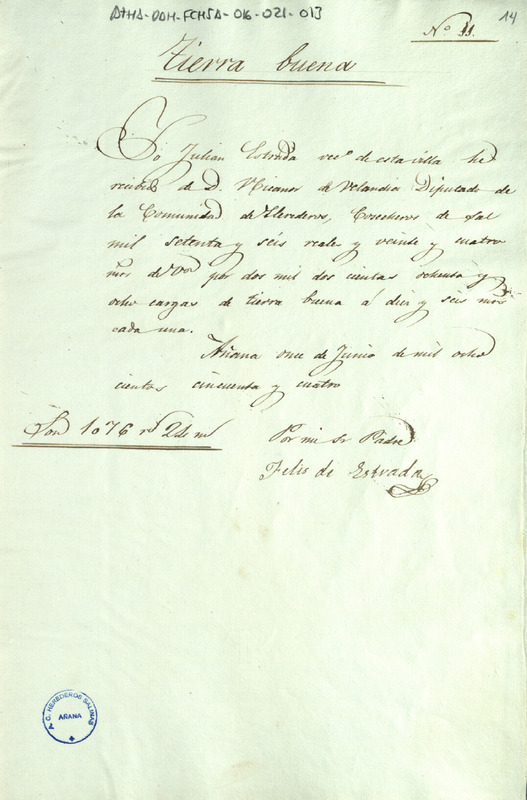 ATHA-DAH-FCHSA-016-021-013
14
Nº 11.
Tierra buena
Yo Julian Estrada vecº de esta villa he
recibido de D. Nicanor de Velandia Diputado de
la Comunidad de Herederos, Cosecheros de sal
mil setenta y seis reales y veinte y cuatro
mrs de Von por dos mil dos cientas ochenta y
ocho cargas de tierra buena á diez y seis mrs
cada una.
Añana once de Junio de mil ocho
cientos cincuenta y cuatro
Son 1076 rs 24 ms
Por mi Sr Padre
Felis de Estrada
A. C. HEREDEROS SALINAS
AÑANA